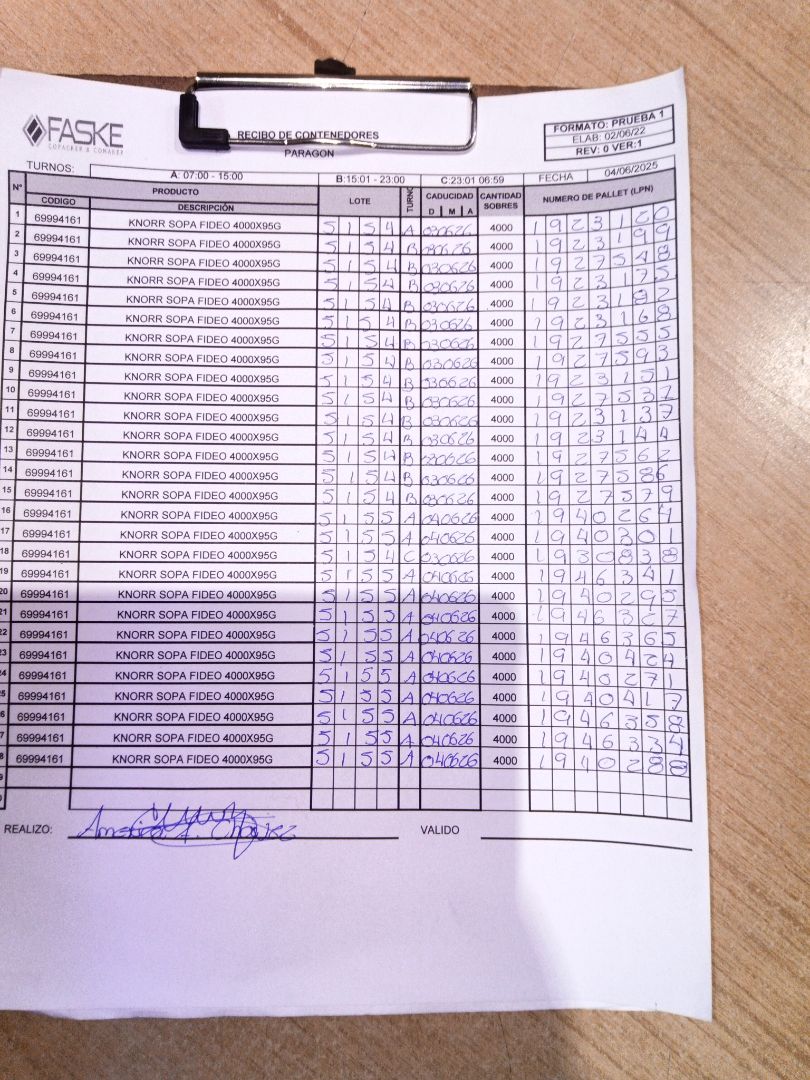 FASKE
COPACKER & COMAKER
RECIBO DE CONTENEDORES
PARAGON
FORMATO: PRUEBA 1
ELAB: 02/06/22
REV: 0 VER:1
TURNOS: A: 07:00 - 15:00 B:15:01 - 23:00 C:23:01 06:59 FECHA 04/06/2025
N° PRODUCTO LOTE TURNO CADUCIDAD CANTIDAD SOBRES NUMERO DE PALLET (LPN)
CODIGO DESCRIPCIÓN D M A
1 69994161 KNORR SOPA FIDEO 4000X95G 5154 A 030626 4000 1923120
2 69994161 KNORR SOPA FIDEO 4000X95G 5154 B 030626 4000 1923199
3 69994161 KNORR SOPA FIDEO 4000X95G 5154 B 030626 4000 1927548
4 69994161 KNORR SOPA FIDEO 4000X95G 5154 B 030626 4000 1923175
5 69994161 KNORR SOPA FIDEO 4000X95G 5154 B 030626 4000 1923182
6 69994161 KNORR SOPA FIDEO 4000X95G 5154 B 030626 4000 1923168
7 69994161 KNORR SOPA FIDEO 4000X95G 5154 B 030626 4000 1927555
8 69994161 KNORR SOPA FIDEO 4000X95G 5154 B 030626 4000 1927593
9 69994161 KNORR SOPA FIDEO 4000X95G 5154 B 030626 4000 1923151
10 69994161 KNORR SOPA FIDEO 4000X95G 5154 B 030626 4000 1927531
11 69994161 KNORR SOPA FIDEO 4000X95G 5154 B 030626 4000 1923137
12 69994161 KNORR SOPA FIDEO 4000X95G 5154 B 030626 4000 1923144
13 69994161 KNORR SOPA FIDEO 4000X95G 5154 B 030626 4000 1927562
14 69994161 KNORR SOPA FIDEO 4000X95G 5154 B 030626 4000 1927586
15 69994161 KNORR SOPA FIDEO 4000X95G 5154 B 030626 4000 1927579
16 69994161 KNORR SOPA FIDEO 4000X95G 5155 A 040626 4000 1940264
17 69994161 KNORR SOPA FIDEO 4000X95G 5155 A 040626 4000 1940301
18 69994161 KNORR SOPA FIDEO 4000X95G 5154 C 030626 4000 1930838
19 69994161 KNORR SOPA FIDEO 4000X95G 5155 A 040626 4000 1946341
20 69994161 KNORR SOPA FIDEO 4000X95G 5155 A 040626 4000 1940295
21 69994161 KNORR SOPA FIDEO 4000X95G 5155 A 040626 4000 1946327
22 69994161 KNORR SOPA FIDEO 4000X95G 5155 A 040626 4000 1946365
23 69994161 KNORR SOPA FIDEO 4000X95G 5155 A 040626 4000 1940424
24 69994161 KNORR SOPA FIDEO 4000X95G 5155 A 040626 4000 1940271
25 69994161 KNORR SOPA FIDEO 4000X95G 5155 A 040626 4000 1940417
6 69994161 KNORR SOPA FIDEO 4000X95G 5155 A 040626 4000 1946358
7 69994161 KNORR SOPA FIDEO 4000X95G 5155 A 040626 4000 1946334
8 69994161 KNORR SOPA FIDEO 4000X95G 5155 A 040626 4000 1940288
9
REALIZO: VALIDO